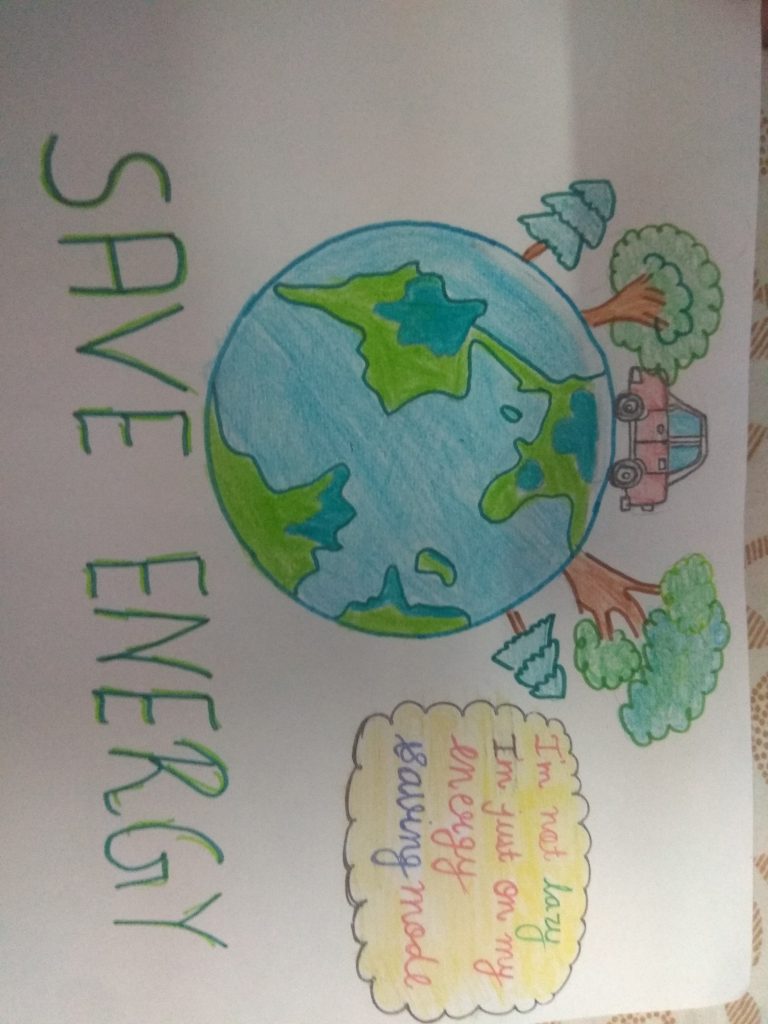 I'm not lazy
I'm just on my
energy
saving mode
SAVE ENERGY